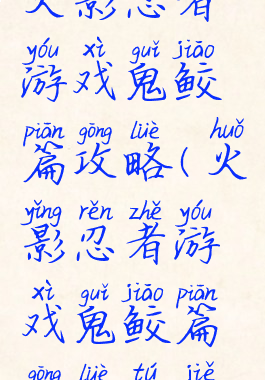 火影忍者
yóu xì guǐ jiāo
游戏鬼鲛
piān gōng lüè huǒ
篇攻略(火
yǐng rěn zhě yóu
影忍者游
xì guǐ jiāo piān
戏鬼鲛篇
gōng lüè tú jiě